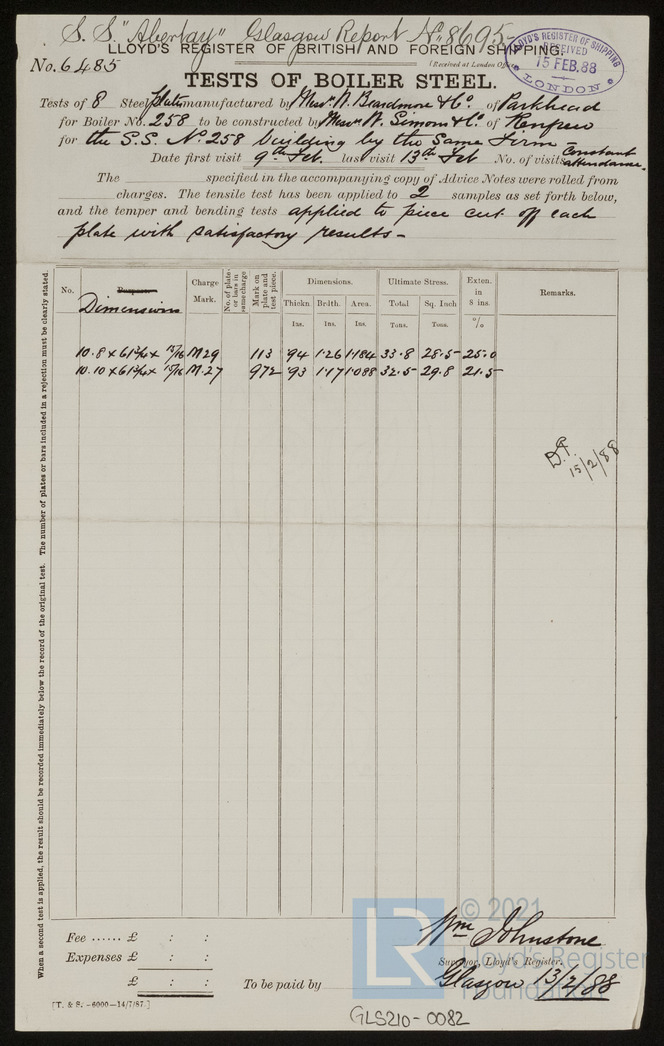 S. S. "Abertay" Glasgow Report No. 8695
LLOYD'S REGISTER OF BRITISH AND FOREIGN SHIPPING.
LLOYD'S REGISTER OF SHIPPING
RECEIVED
15 FEB. 88
LONDON
No. 6485
(Received at London Office
TESTS OF BOILER STEEL.
Tests of 8 Steel Plates manufactured by Messrs. W. Beardmore & Co. of Parkhead
for Boiler No. 258 to be constructed by Messrs. W. Simons & Co. of Renfrew
for the S.S. No. 258 building by the Same Firm
Date first visit 9th Feb. last visit 13th Feb No. of visits Constant attendance.
The specified in the accompanying copy of Advice Notes were rolled from
charges. The tensile test has been applied to 2 samples as set forth below,
and the temper and bending tests applied to piece cut off each
plate with satisfactory results -
No. Purpose. Charge Mark. No. of plates or bars in same charge Mark on plate and test piece. Dimensions. Ultimate Stress. Exten. in 8 ins. Remarks.
Dimensions
Thickn Brdth. Area. Total Sq. Inch
Ins. Ins. Ins. Tons. Tons. %
10.8 x 61 3/4 x 15/16 M29 113 .94 1.26 1.184 33.8 28.5 25.0
10.10 x 61 3/4 x 15/16 M.27 972 .93 1.17 1.088 32.5 29.8 21.5
15/2/88
When a second test is applied, the result should be recorded immediately below the record of the original test. The number of plates or bars included in a rejection must be clearly stated.
Fee ...... £ : :
Expenses £ : :
£ : :
To be paid by
Wm Johnstone
Surveyor, Lloyd's Register.
Glasgow 13/2/88
[T. & S. -6000-14/7/87.]
LR
© 2021
Lloyd's Register
Foundation
GLS210-0082